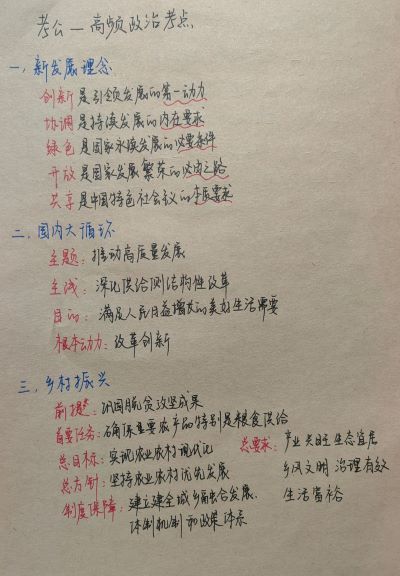 考公—高频政治考点
一、新发展理念
创新是引领发展的第一动力
协调是持续发展的内在要求
绿色是国家永续发展的必要条件
开放是国家发展繁荣的必由之路
共享是中国特色社会主义的本质要求
二、国内大循环
主题:推动高质量发展
主线:深化供给侧结构性改革
目的:满足人民日益增长的美好生活需要
根本动力:改革创新
三、乡村振兴
前提:巩固脱贫攻坚成果
首要任务:确保重要农产品特别是粮食供给
总目标:实现农业农村现代化
总方针:坚持农业农村优先发展
制度保障:建立健全城乡融合发展
体制机制和政策体系
总要求:产业兴旺生态宜居
乡风文明 治理有效
生活富裕